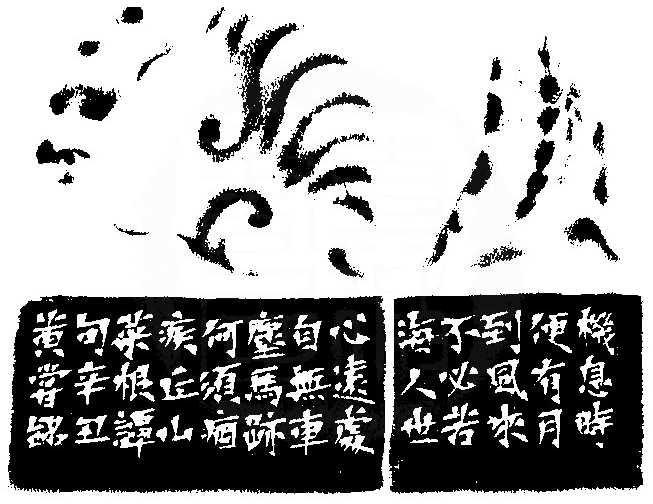 機息時
便有月
到風來
不必苦
海人世
心遠處
自無車
塵馬跡
何須痼
疾丘山
菜根譚
句辛丑
黃嘗銘